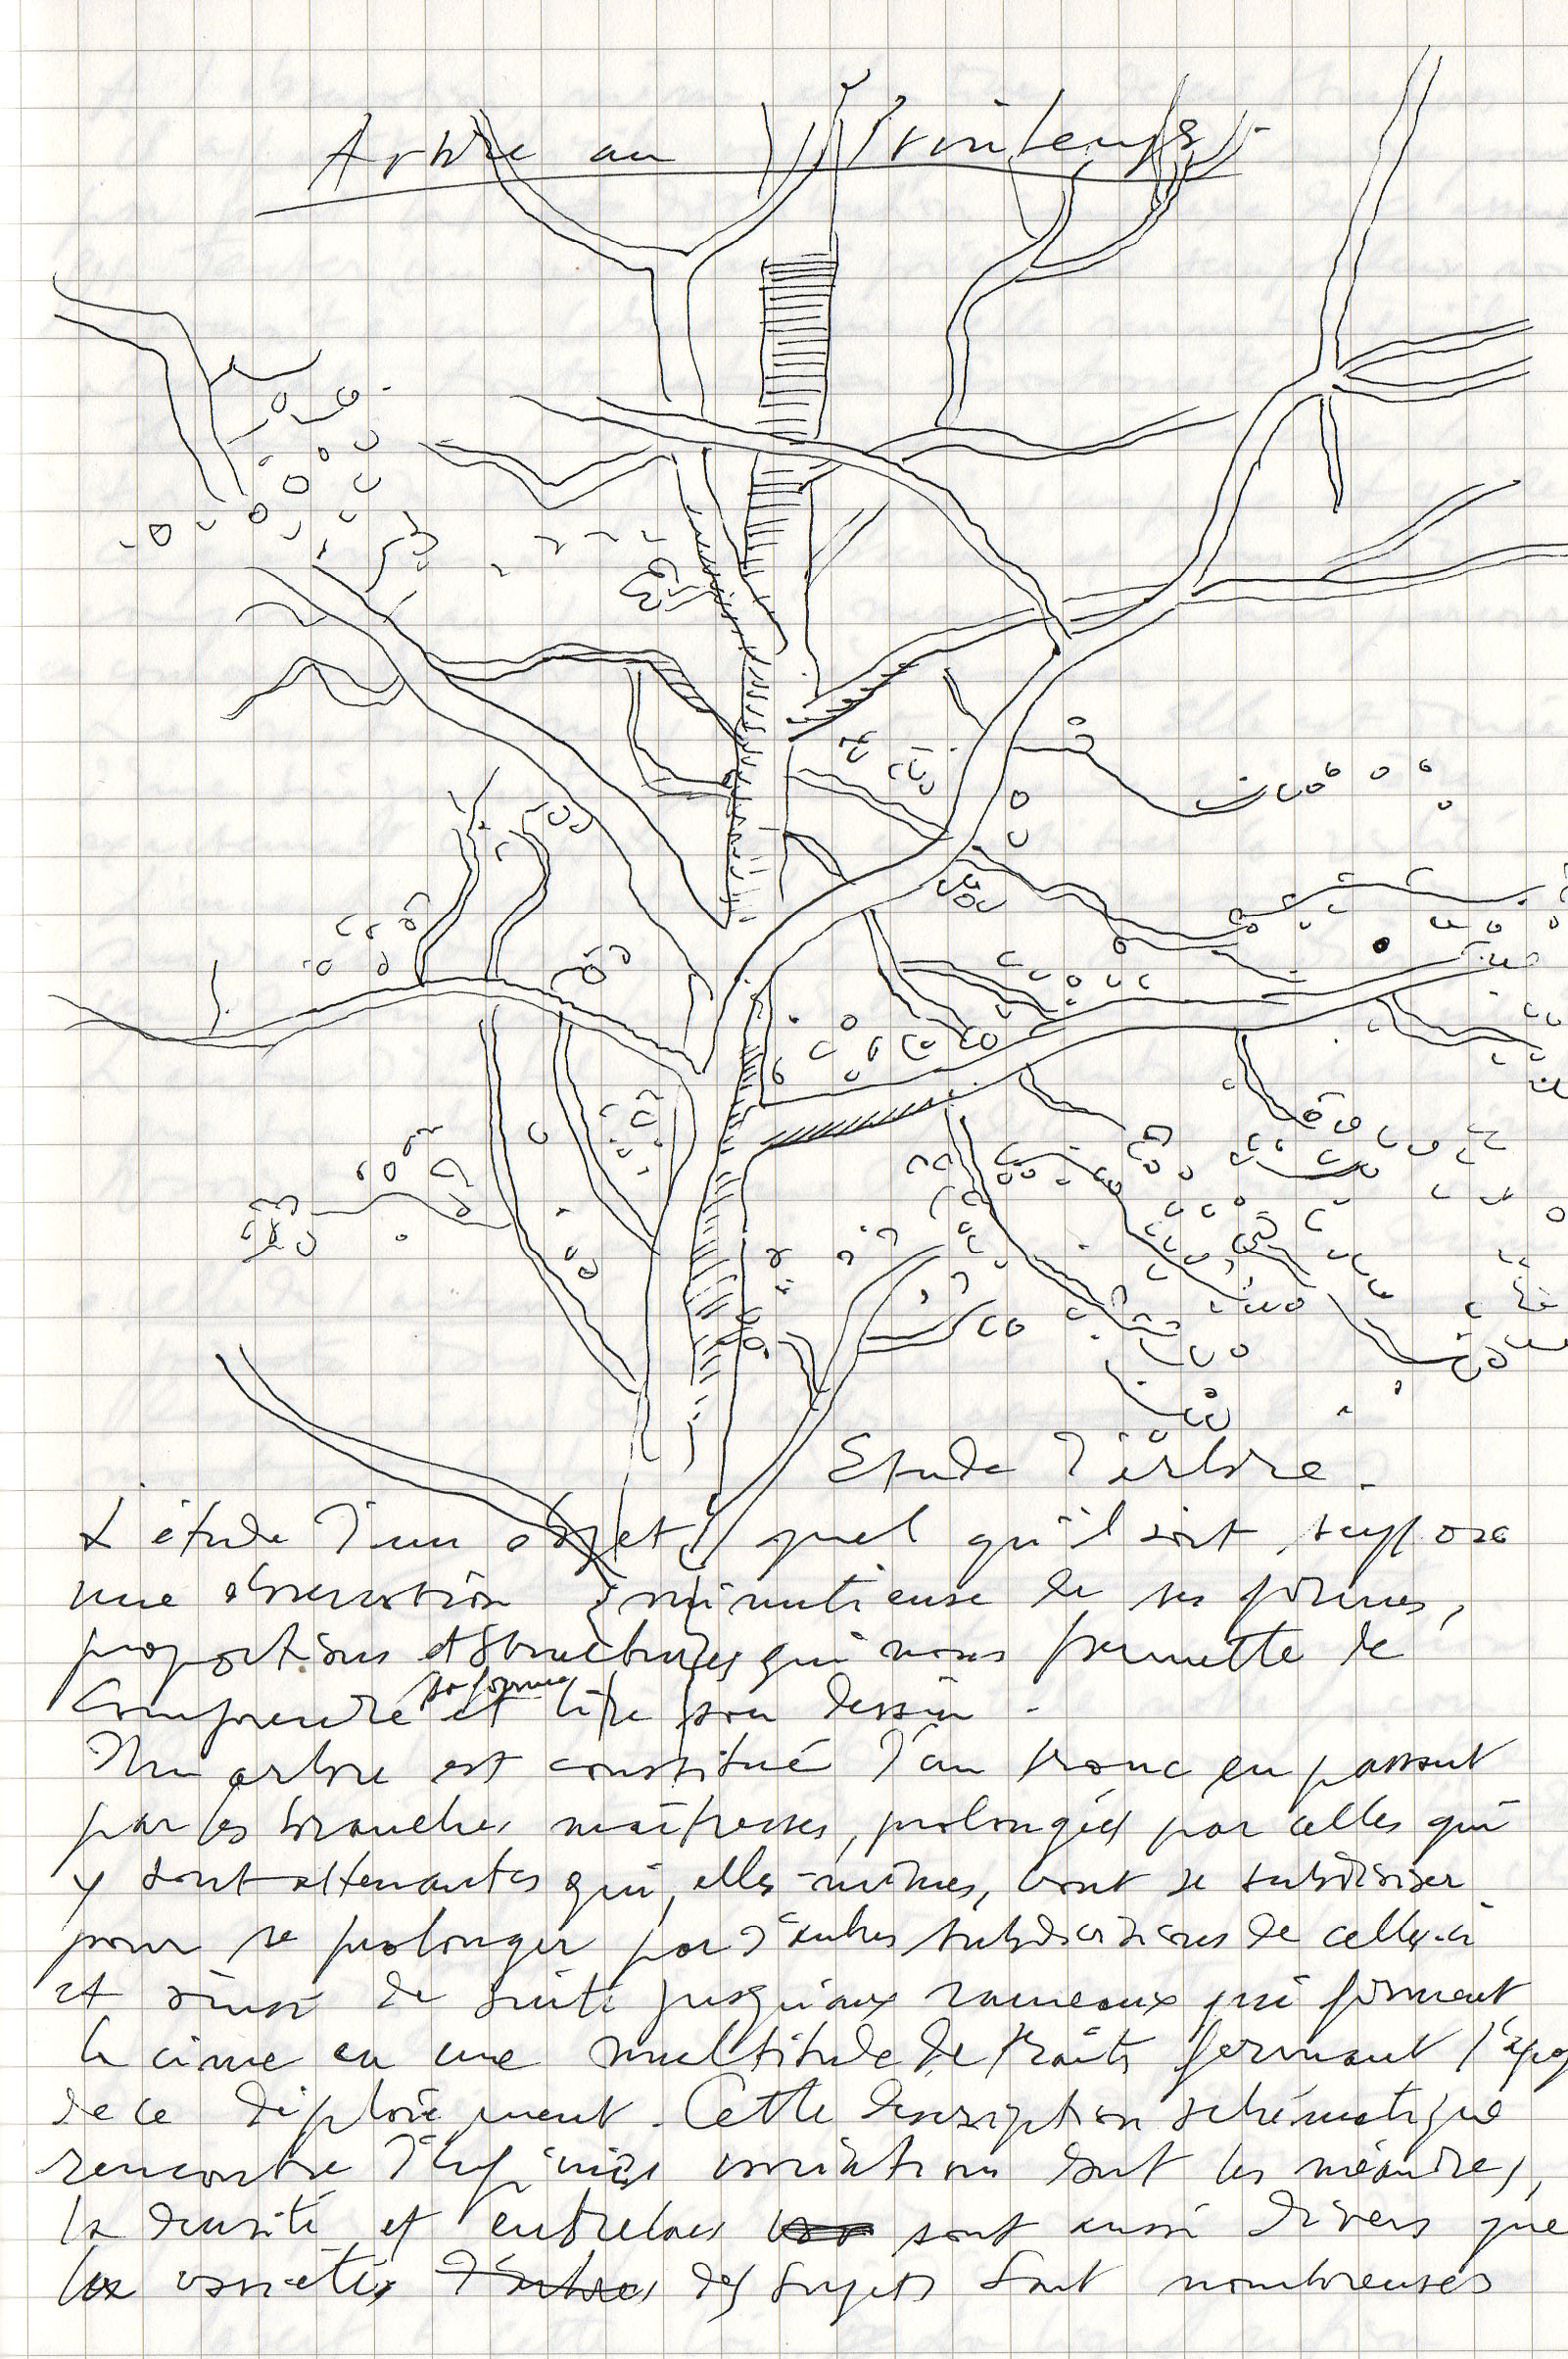 Arbre au Printemps
Etude d'arbre.
L'étude d'un objet, quel qu'il soit, suppose
une observation minutieuse de ses formes,
proportions et structures qui nous permette de
comprendre sa forme et lire son dessin.
Un arbre est constitué d'un tronc en passant
par les branches maîtresses, prolongées par celles qui
y sont attenantes qui, elles-mêmes, vont se subdiviser
pour se prolonger par d'autres subdivisions de celles-ci
et ainsi de suite jusqu'aux rameaux qui forment
la cime en une multitude de traits formant
de ce déploiement. Cette description schématique
rencontre d'infinies variations dont les méandres,
la densité et entrelacs sont aussi divers que
les variétés d'arbres des sujets sont nombreuses